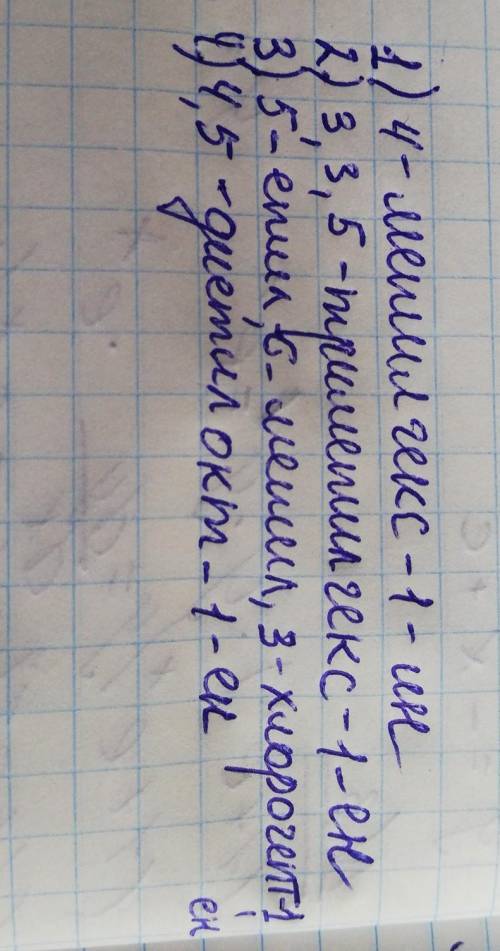 1) 4-метилгекс-1-ин
2) 3,3,5-триметилгекс-1-ен
3) 5-етил, 6-метил, 3-хлорогепт-1
ен
4) 4,5-диетилокт-1-ен